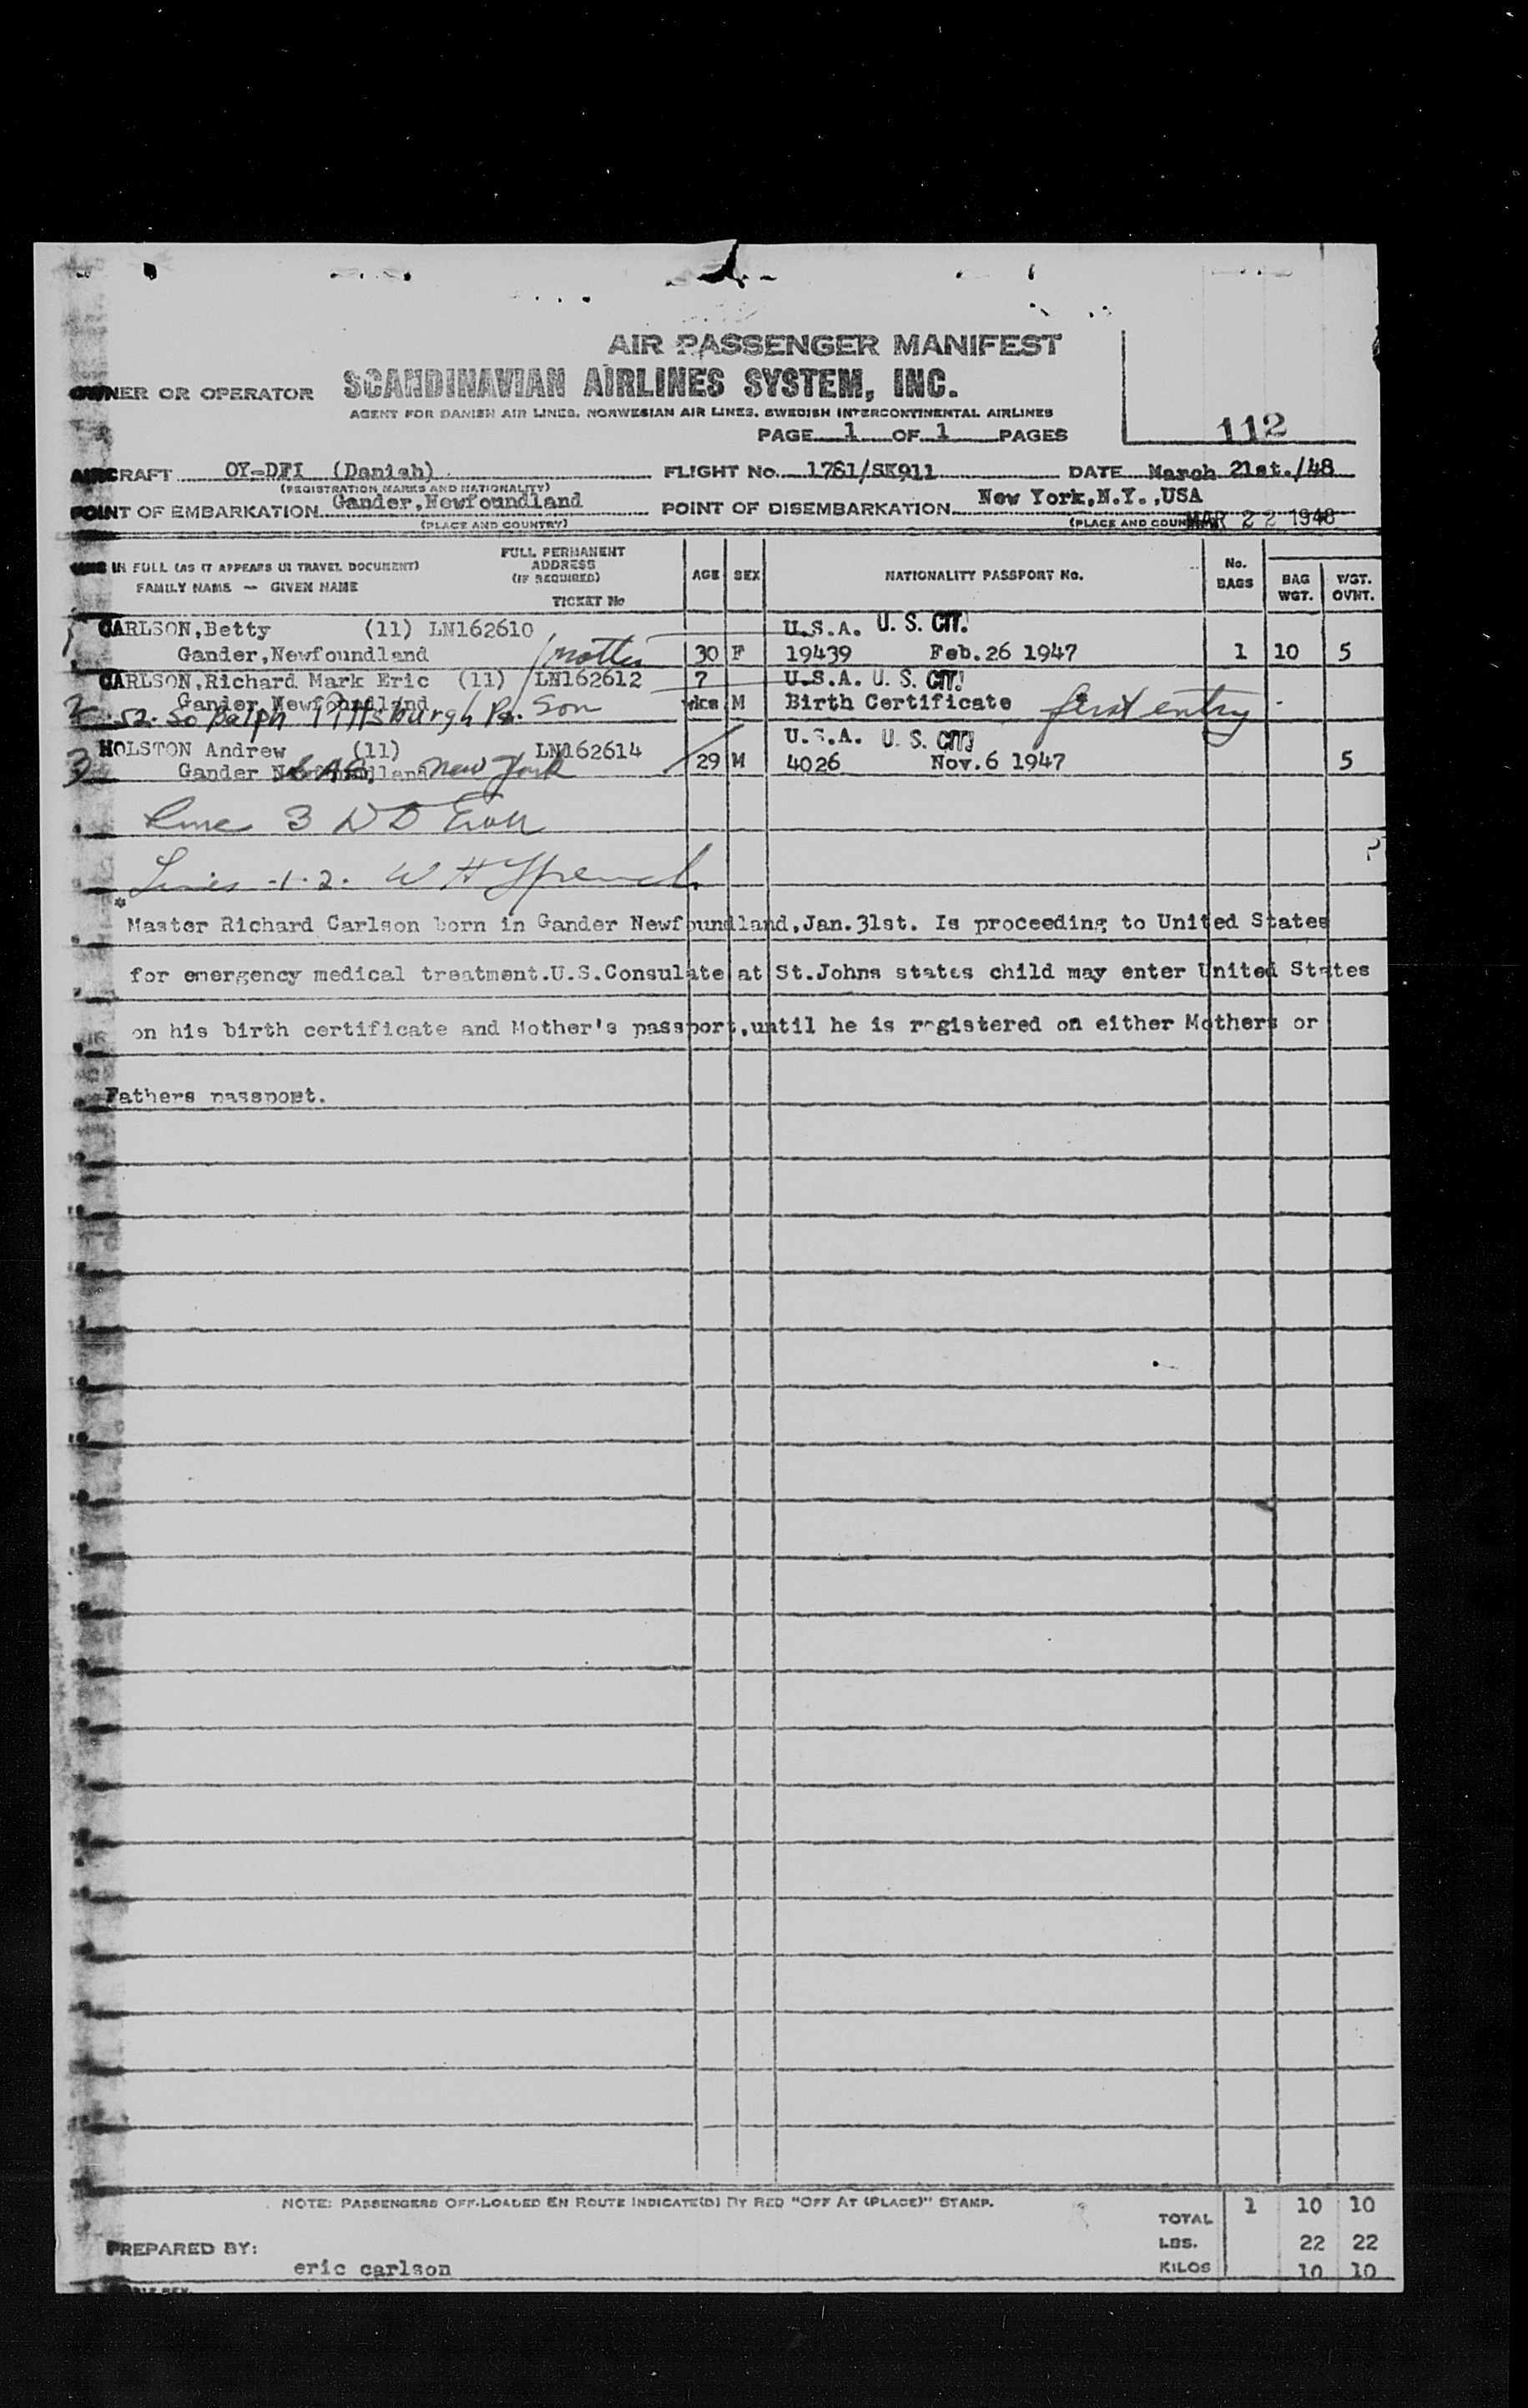 AIR PASSENGER MANIFEST
OWNER OR OPERATOR SCANDINAVIAN AIRLINES SYSTEM, INC.
AGENT FOR DANISH AIR LINES. NORWEGIAN AIR LINES. SWEDISH INTERCONTINENTAL AIRLINES
PAGE 1 OF 1 PAGES
112
AIRCRAFT OY-DFI (Danish) FLIGHT No. 1761/SK911 DATE March 21st./48
(REGISTRATION MARKS AND NATIONALITY)
POINT OF EMBARKATION Gander,Newfoundland POINT OF DISEMBARKATION New York,N.Y.,USA
(PLACE AND COUNTRY) (PLACE AND COUNTRY) MAR 22 1948
IN FULL (AS IT APPEARS IN TRAVEL DOCUMENT) FULL PERMANENT ADDRESS (IF REQUIRED) AGE SEX NATIONALITY PASSPORT No. No. BAGS BAG WGT. WGT. OVNT.
FAMILY NAME — GIVEN NAME TICKET No
1 CARLSON,Betty (11) LN162610 U.S.A. U. S. CIT.
Gander,Newfoundland mother 30 F 19439 Feb.26 1947 1 10 5
2 CARLSON,Richard Mark Eric (11) LN162612 7 U.S.A. U. S. CIT.
Gander Newfoundland wks M Birth Certificate first entry
52. So Ralph Pittsburgh Pa. Son
3 HOLSTON Andrew (11) LN162614 U.S.A. U. S. CIT.
Gander Newfoundland New York 29 M 4026 Nov.6 1947 5
Line 3
Lines -1-2. W H French
*
Master Richard Carlson born in Gander Newfoundland,Jan.31st. Is proceeding to United States
for emergency medical treatment.U.S.Consulate at St.Johns states child may enter United States
on his birth certificate and Mother's passport,until he is registered on either Mothers or
Fathers passport.
NOTE: PASSENGERS OFF-LOADED EN ROUTE INDICATE(D) BY RED "OFF AT (PLACE)" STAMP.
TOTAL 1 10 10
PREPARED BY: LBS. 22 22
eric carlson KILOS 10 10